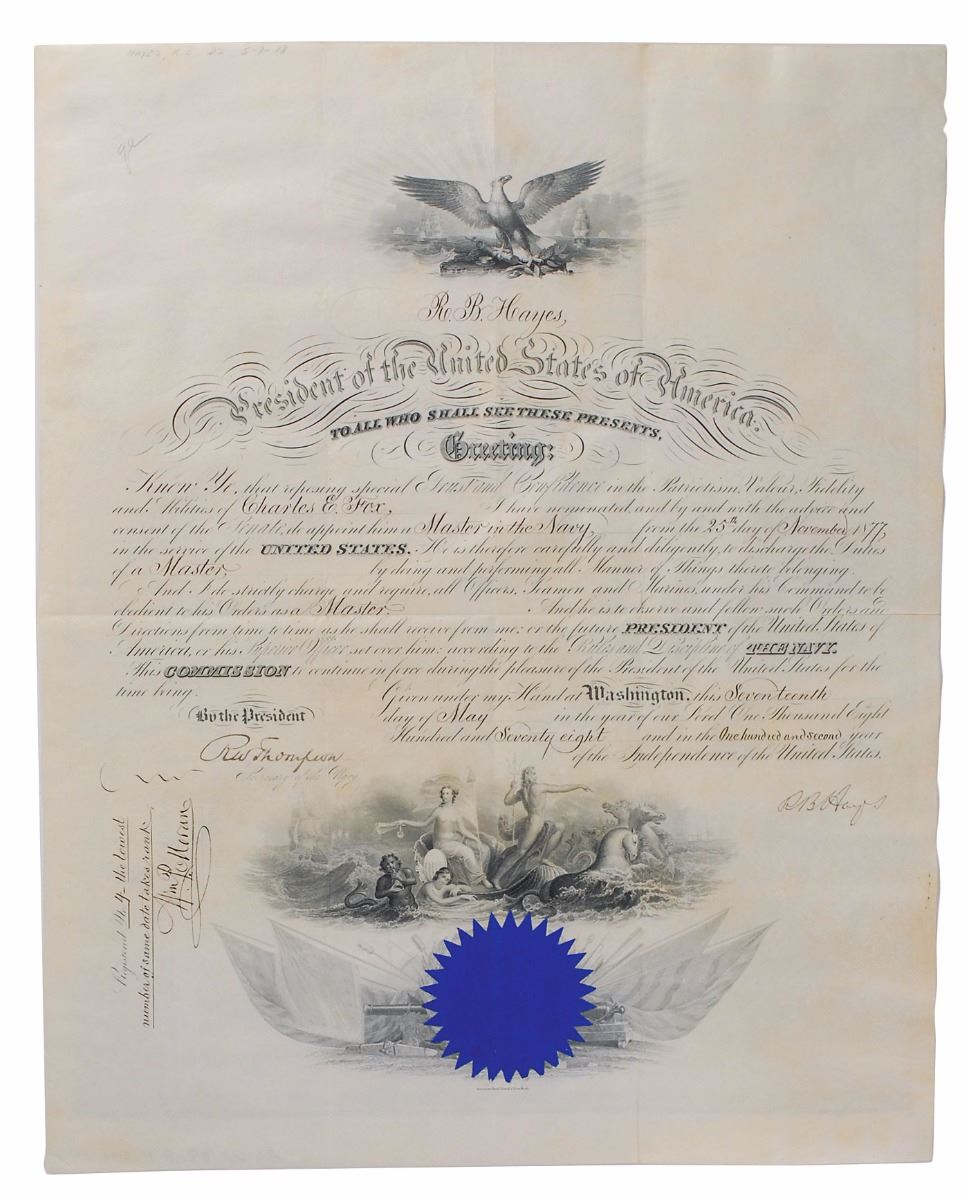 R. B. Hayes,
President of the United States of America.
TO ALL WHO SHALL SEE THESE PRESENTS,
Greeting:
Know Ye, that reposing special Trust and Confidence in the Patriotism, Valour, Fidelity
and Abilities of Charles E. Fox, I have nominated and by and with the advice and
consent of the Senate, do appoint him a Master in the Navy, from the 25th day of November, 1877,
in the service of the UNITED STATES. He is therefore carefully and diligently, to discharge the Duties
of a Master, by doing and performing all Manner of Things thereto belonging.
And I do strictly charge and require, all Officers, Seamen and Marines, under his Command to be
obedient to his Orders as a Master. And he is to observe and follow such Orders and
Directions from time to time as he shall receive from me; or the future PRESIDENT of the United States of
America, or his Superior Officer set over him; according to the Rules and Discipline of THE NAVY.
This COMMISSION to continue in force during the pleasure of the President of the United States for the
time being.
Given under my Hand at Washington, this Seventeenth
By the President
day of May in the year of our Lord One Thousand Eight
Hundred and Seventy eight and in the One hundred and second year
of the Independence of the United States.
R W Thompson
Secretary of the Navy
R B Hayes
Registered No 4 the lowest
number of same date takes rank
Wm P. Moran